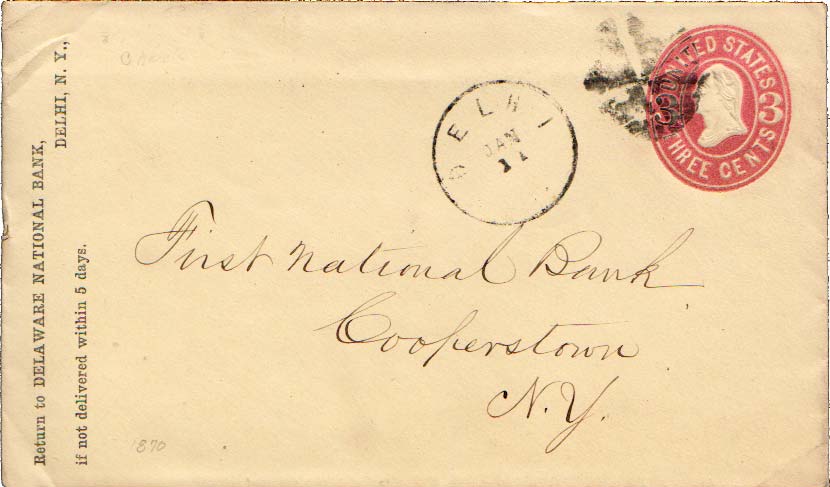 Return to DELAWARE NATIONAL BANK,
DELHI, N. Y.,
if not delivered within 5 days.
DELHI
JAN
11
UNITED STATES
3 3
THREE CENTS
First National Bank
Cooperstown
N.Y.
1870